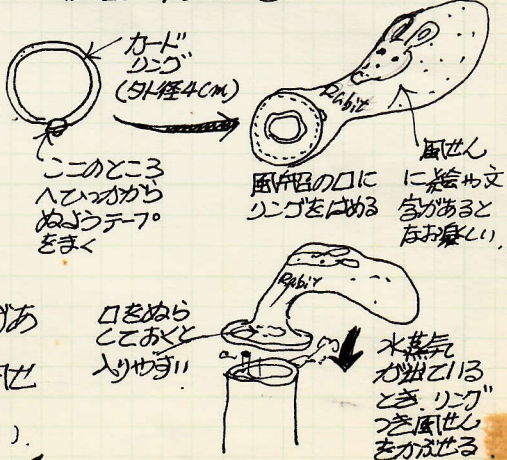 カード
リング
(外径4cm)
ここのところ
へひっかから
ぬようテープ
をまく
Rabit
風船の口に
リングをはめる
風せん
に絵や文
字があると
なお楽しい。
があ
口をぬら
しておくと
入りやすい
Rabit
水蒸気
が出ている
とき、リング
つき風せん
をかぶせる
せ
).